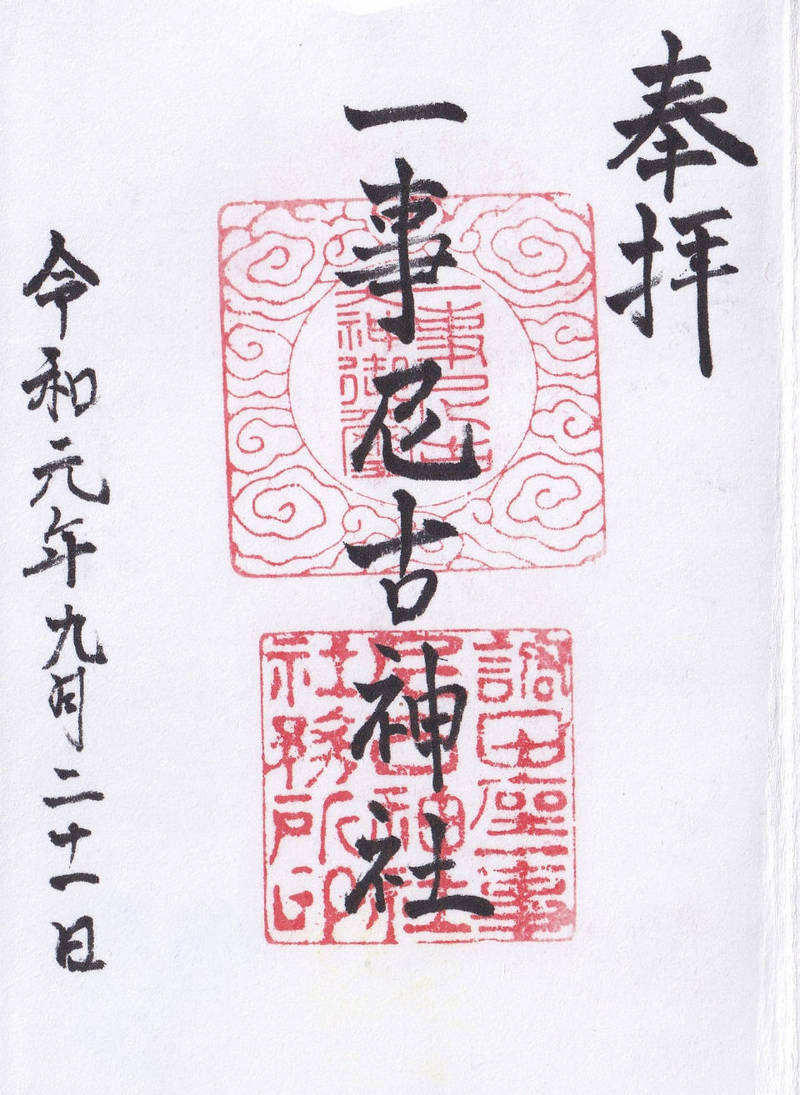 奉拝
一事尼古神社
令和元年九月二十一日
一事尼古
大神御璽
調田坐一事
尼古神社
社務所印